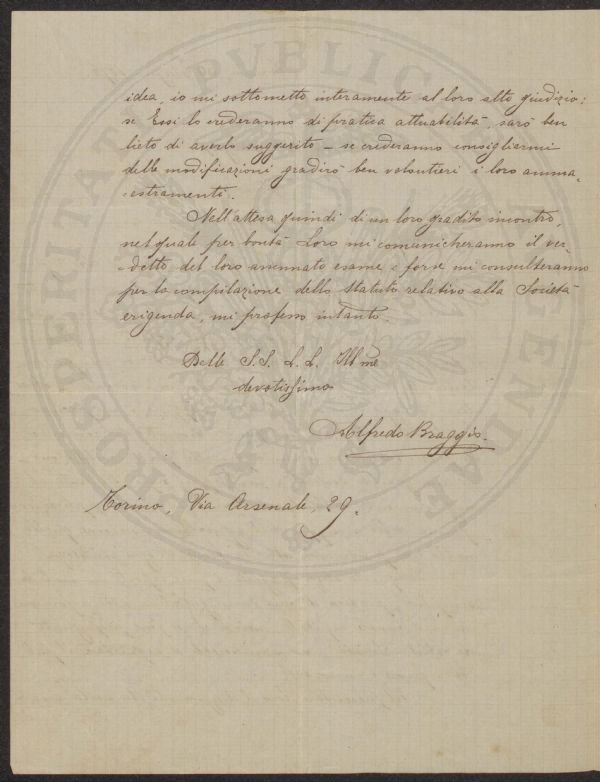 idea, io mi sottometto interamente al loro alto giudizio:
se Essi lo crederanno di pratica attuabilità, sarò ben
lieto di averlo suggerito – se crederanno consigliarmi
delle modificazioni gradirò ben volentieri i loro amma-
estramenti.
Nell'attesa quindi di un loro gradito incontro,
nel quale per bontà Loro mi comunicheranno il ver-
detto del loro assennato esame e forse mi consulteranno
per la compilazione dello Statuto relativo alla Società
erigenda, mi professo intanto.
Delle S.S. L.L. Ill.me
devotissimo
Alfredo Braggio.
Torino, Via Arsenale, 29.
PROSPERITATI PVBLICAE AVGENDAE